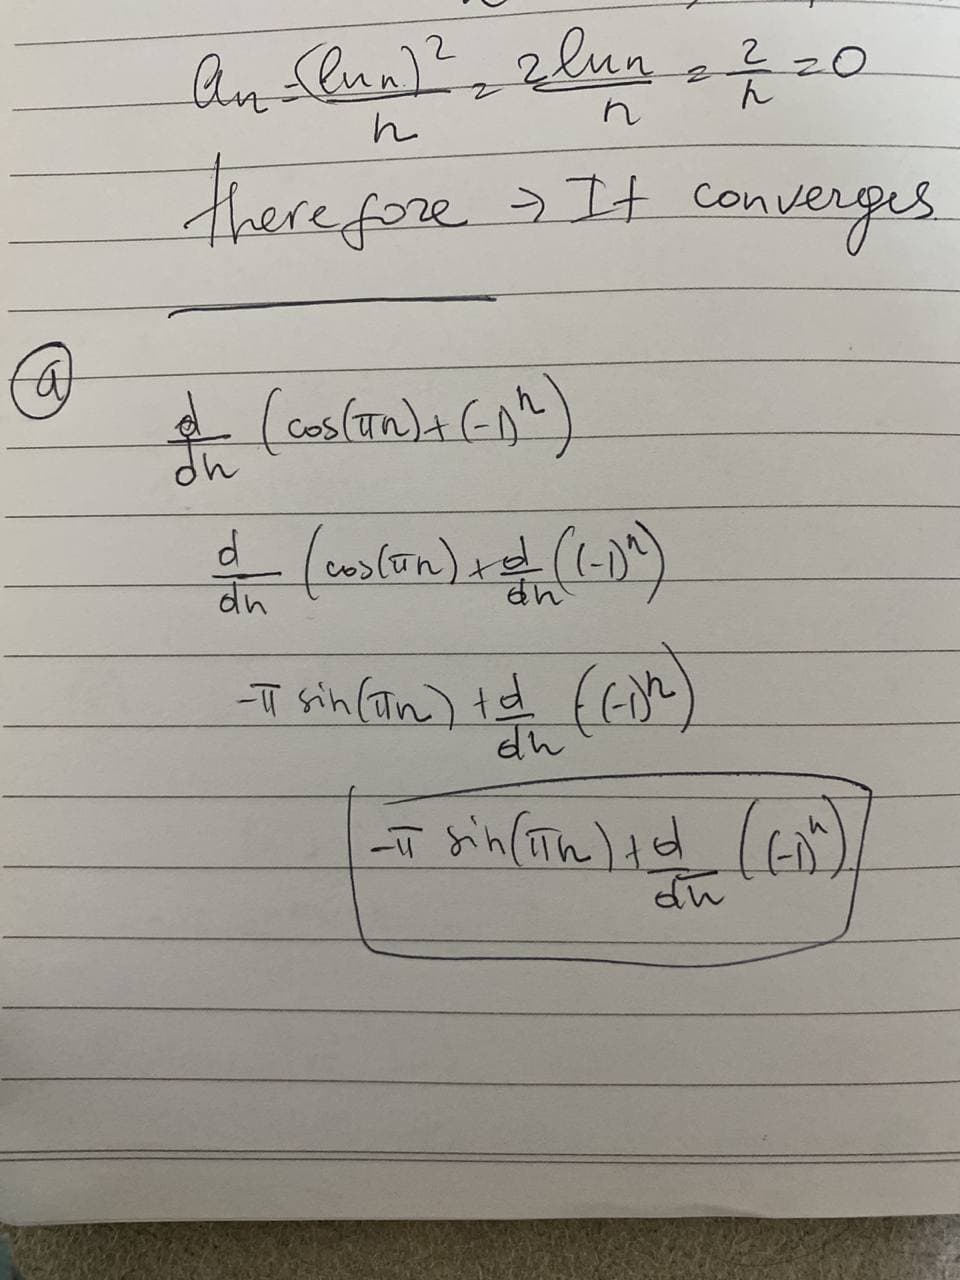 an = (ln n)^2/n = 2 ln n/n = 2/n = 0
therefore → It converges
a
d/dn (cos(πn) + (-1)^n)
d/dn (cos(πn) + d/dn ((-1)^n)
-π sin(πn) + d/dn ((-1)^n)
-π sin(πn) + d/dn ((-1)^n)